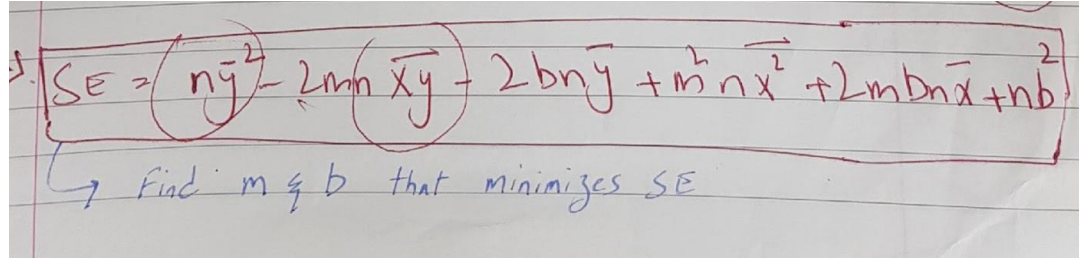 SE = nȳ² - 2mn x̅y̅ - 2bnȳ + m²n x̅² + 2mbnx̅ + nb²
Find m & b that minimizes SE